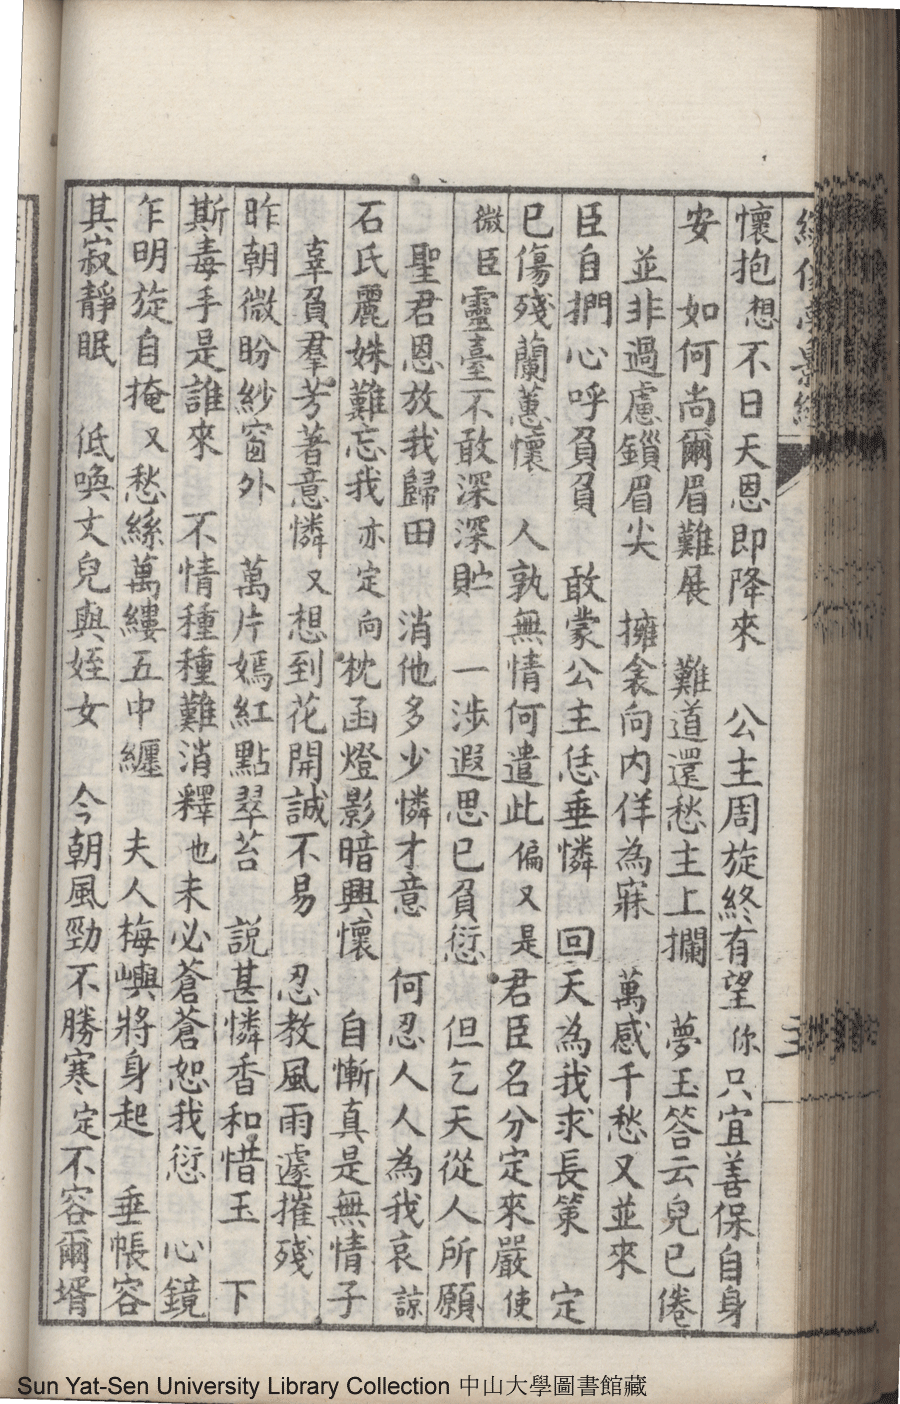 懷抱想不日天恩即降來　公主周旋終有望你只宜善保自身
安　如何尚爾眉難展　難道還愁主上攔　夢玉答云兒已倦
並非過慮鎖眉尖　擁衾向內佯為寐　萬感千愁又並來
臣自捫心呼負負　敢蒙公主恁垂憐　回天為我求長策　定
已傷殘蘭蕙懷　人孰無情何遣此偏又是君臣名分定來嚴使
微臣靈臺不敢深深貯　一涉遐思已負愆　但乞天從人所願
聖君恩放我歸田　消他多少憐才意　何忍人人為我哀諒
石氏麗姝難忘我亦定向枕函燈影暗興懷　自慚真是無情子
辜負羣芳著意憐又想到花開誠不易　忍教風雨遽摧殘
昨朝微盼紗窗外　萬片嫣紅點翠苔　說甚憐香和惜玉　下
斯毒手是誰來　不情種種難消釋也未必蒼蒼恕我愆　心鏡
乍明旋自掩又愁絲萬縷五中纏　夫人梅嶼將身起　垂帳容
其寂靜眠　低喚丈兒與姪女　今朝風勁不勝寒定不容爾壻
Sun Yat-Sen University Library Collection 中山大學圖書館藏